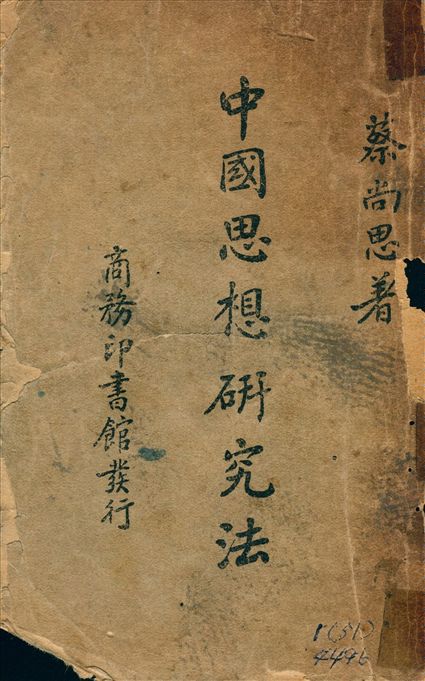 蔡尚思著
中國思想研究法
商務印書館發行
1(51)
4496